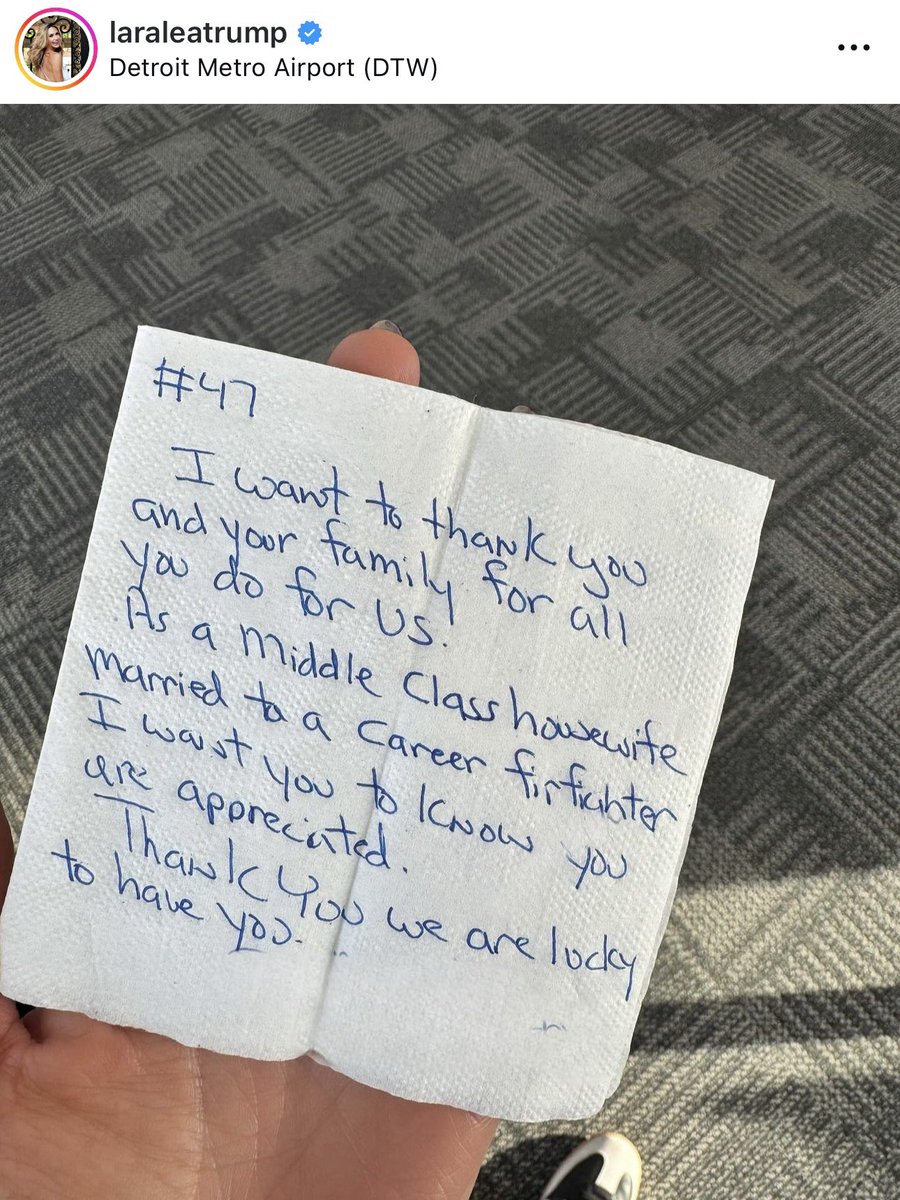 laraleatrump
Detroit Metro Airport (DTW)
#47
I want to thank you
and your family for all
you do for us!
As a middle class housewife
married to a career firfighter
I want you to know you
are appreciated.
Thank you we are lucky
to have you.